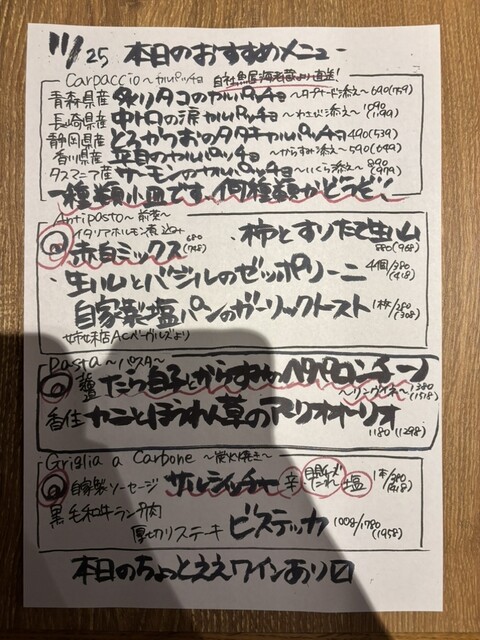 11/25 本日のおすすめメニュー
Carpaccio～カルパッチョ 自社魚屋海老蔵より直送!
青森県産 炙りタコのカルパッチョ ～タプナード添え～690(759)
長崎県産 中トロの涙カルパッチョ ～わさび添え～1090(1199)
静岡県産 とろかつおのタタキカルパッチョ 490(539)
香川県産 平目のカルパッチョ ～からすみ添え～590(649)
タスマニア産 サーモンのカルパッチョ ～いくら添え～890(979)
一種類小皿です、何種類かどうぞ!
Antipasto～前菜～
イタリアホルモン煮込み
赤白ミックス 680(748)
・柿とすりたて生ハム 880(968)
・生ハムとバジルのゼッポリーニ 4個/380(418)
自家製塩パンのガーリックトースト 1枚/280(308)
姉妹店ACベーグルズより
Pasta～パスタ～
たら白子とからすみのペペロンチーノ
～リングイネ～1380(1518)
香住 カニとほうれん草のアーリオオーリオ
1180(1298)
Griglia a Carbone ～炭火焼き～
自家製ソーセージ サルシッチャ 辛 チーズ 塩 1本/380(418)
黒毛和牛ランプ肉
厚切りステーキ ビステッカ 100g/1780(1958)
本日のちょっとええワインあります